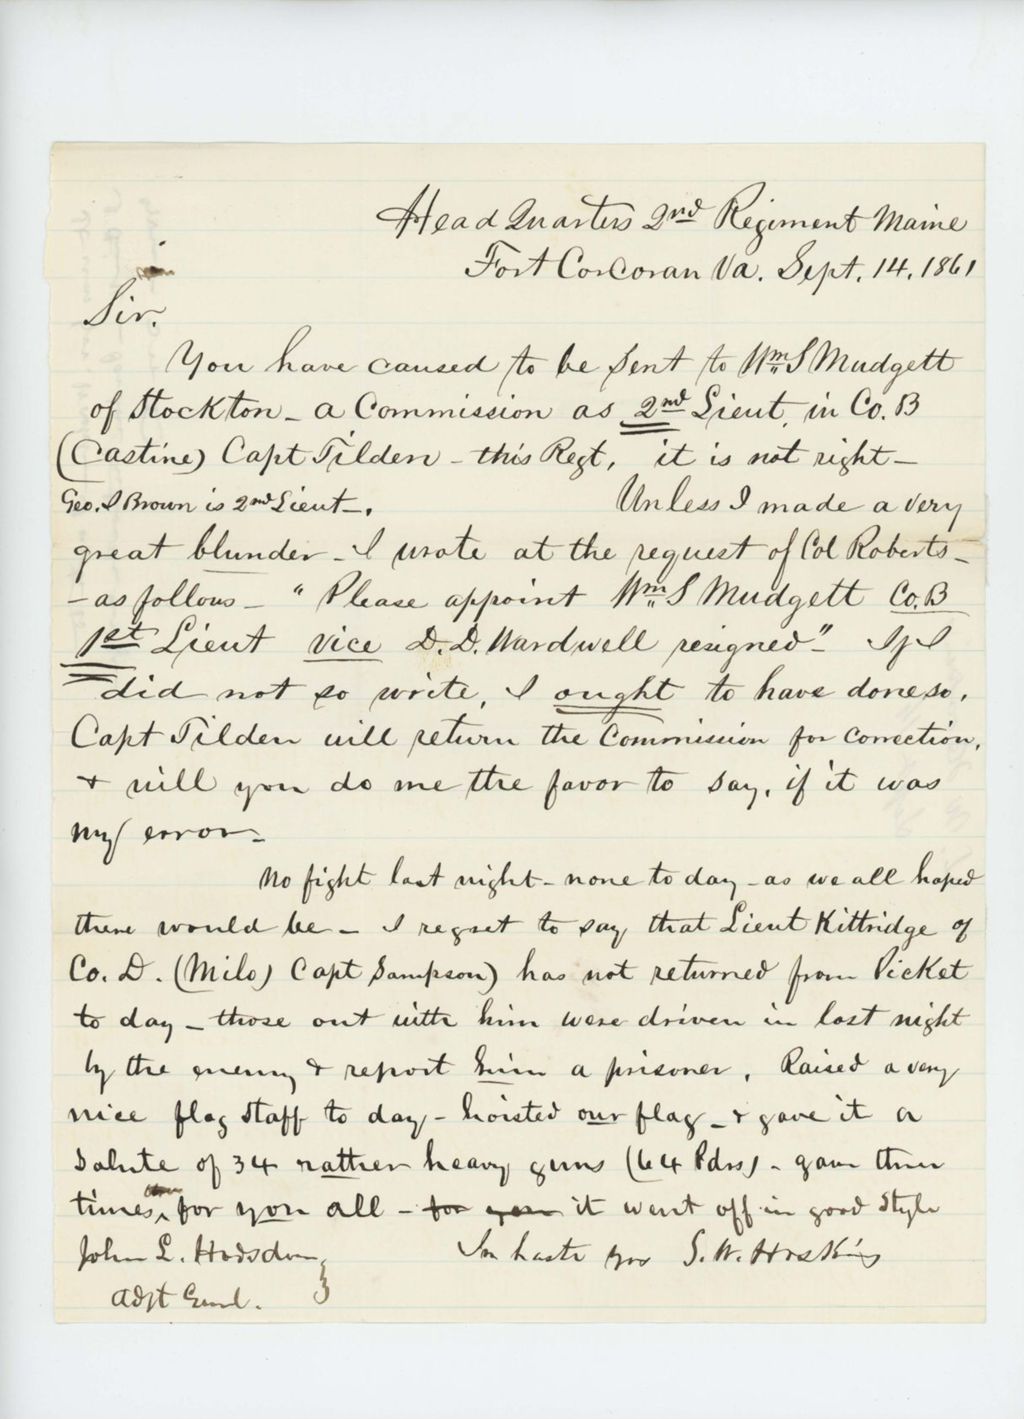 Head Quarters 2nd Regiment Maine
Fort Corcoran Va. Sept. 14. 1861
Sir.
You have caused to be sent to Wm S Mudgett
of Stockton - a Commission as 2nd Lieut. in Co. B
(Castine) Capt Tilden - this Regt, it is not right -
Geo. S Brown is 2nd Lieut -. Unless I made a very
great blunder - I wrote at the request of Col Roberts -
- as follows - " Please appoint Wm S Mudgett Co. B
1st Lieut vice D. D. Wardwell resigned" - If I
did not so write, I ought to have done so.
Capt Tilden will return the Commission for correction,
+ will you do me the favor to say, if it was
my error -
No fight last night - none to day - as we all hoped
there would be - I regret to say that Lieut Kittridge of
Co. D. (Milo) Capt Sampson) has not returned from Picket
to day - those out with him were driven in last night
by the enemy + report him a prisoner. Raised a very
nice flag staff to day - hoisted our flag - + gave it a
Salute of 34 rather heavy guns (64 Pdrs) - gave three
times, for you all - for you it went off in good style
John L. Hodsdon In haste yrs S. W. Hoskins
Adjt Genl.